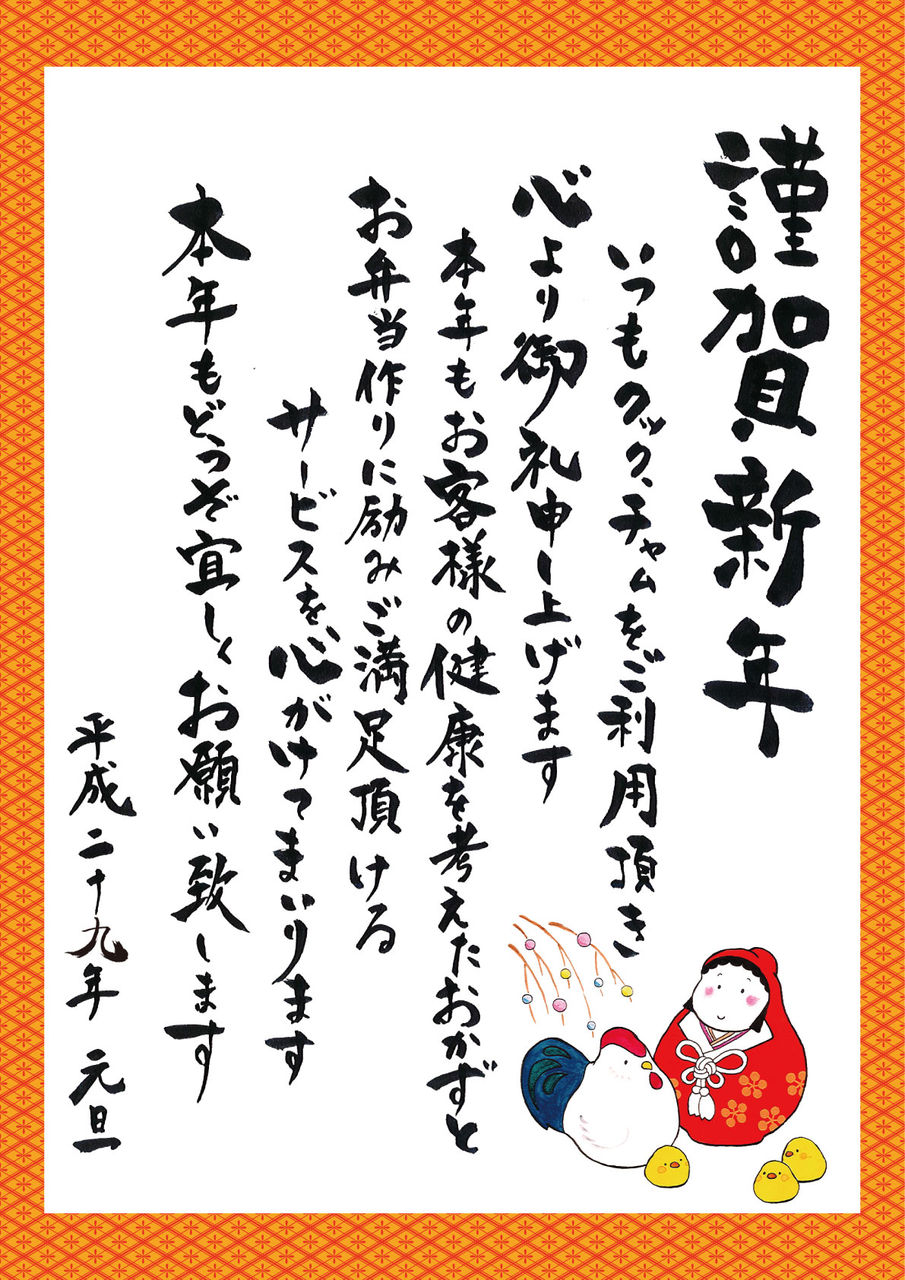 謹賀新年
いつもクック、チャムをご利用頂き
心より御礼申し上げます
本年もお客様の健康を考えたおかずと
お弁当作りに励みご満足頂ける
サービスを心がけてまいります
本年もどうぞ宜しくお願い致します
平成二十九年 元旦